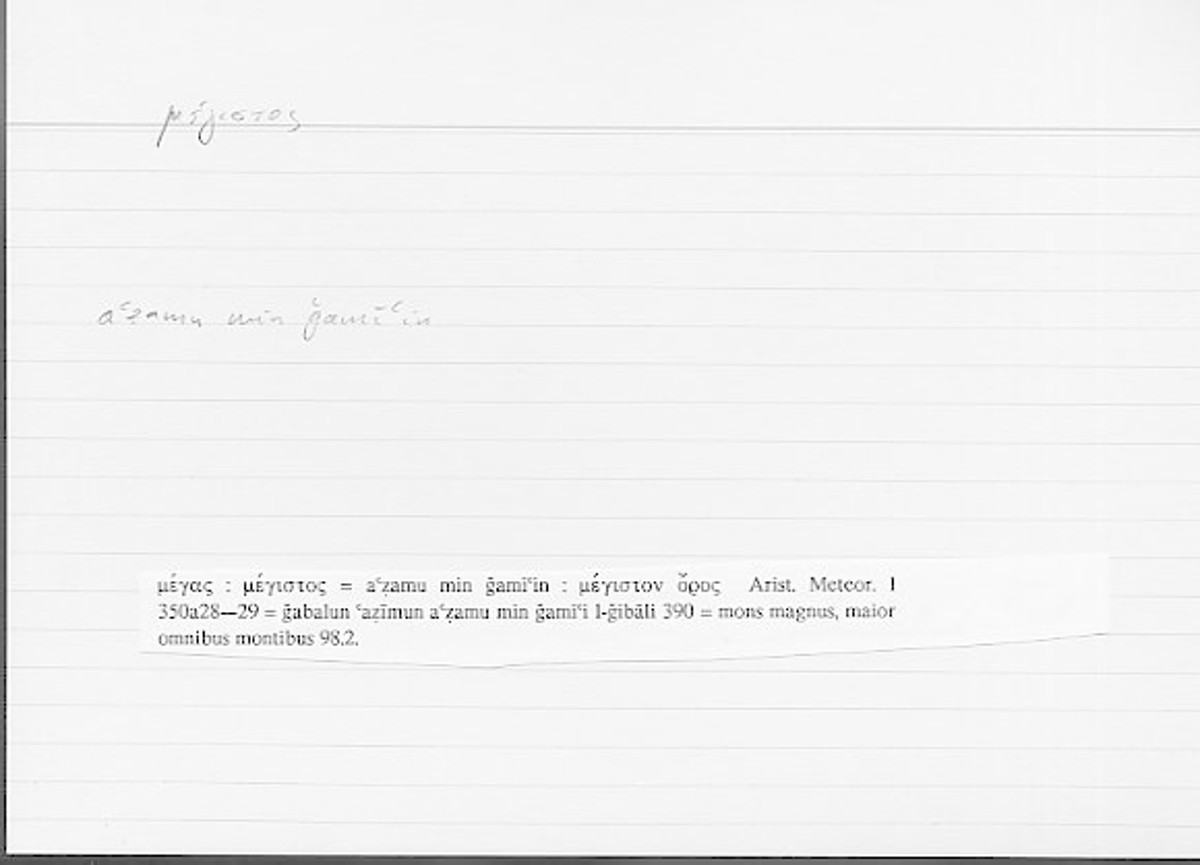 μέγιστος
aʿẓamu min ǧamīʿin
μέγας : μέγιστος = aʿẓamu min ǧamīʿin : μέγιστον ὄρος Arist. Meteor. I
350a28—29 = ǧabalun ʿaẓīmun aʿẓamu min ǧamīʿi l-ǧibāli 390 = mons magnus, maior
omnibus montibus 98,2.